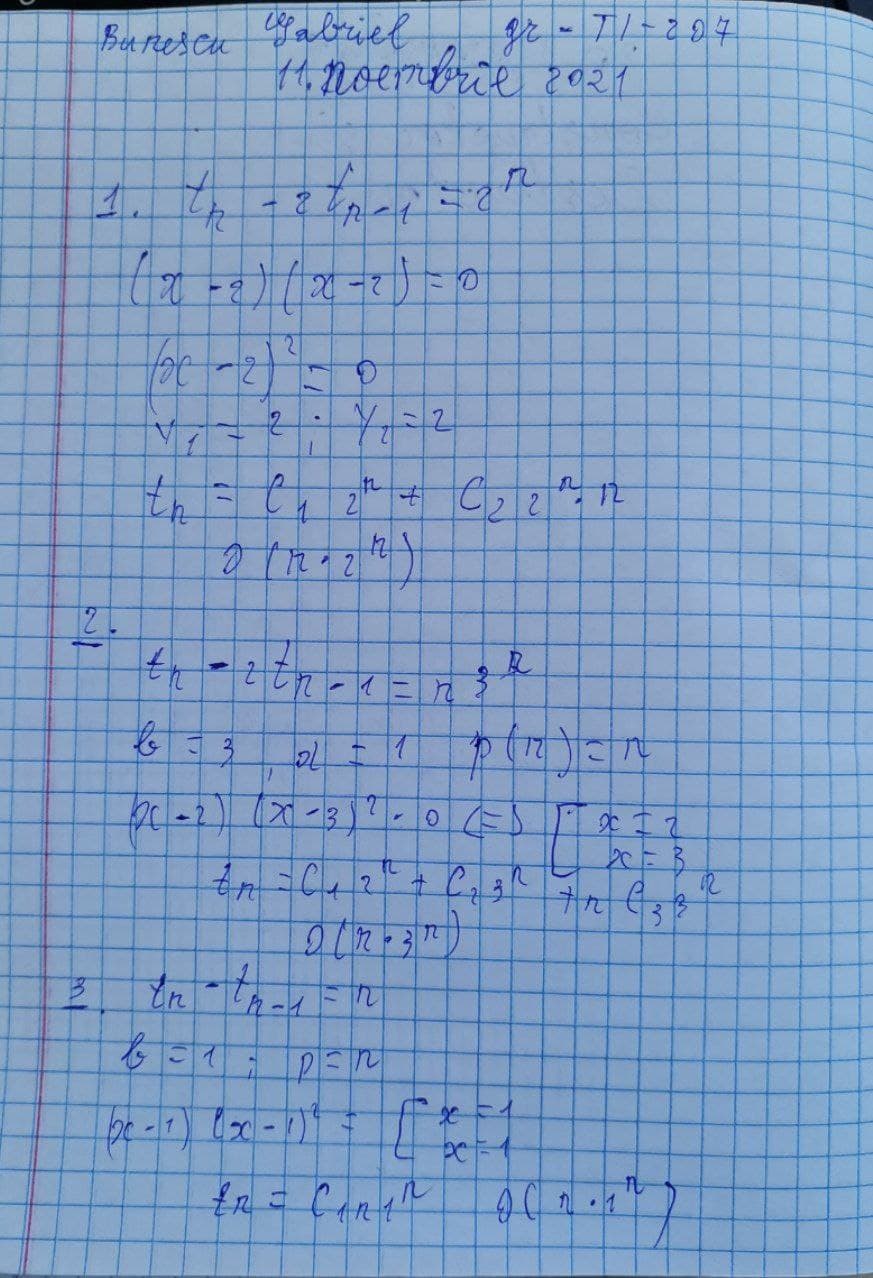 Bunescu Gabriel gr - TI-207
11. noembrie 2021
1. tₙ - 2tₙ₋₁ = 2ⁿ
(x - 2)(x - 2) = 0
(x - 2)² = 0
r₁ = 2 ; r₂ = 2
tₙ = C₁ 2ⁿ + C₂ 2ⁿ · n
O(n · 2ⁿ)
2.
tₙ - 2tₙ₋₁ = n 3ⁿ
b = 3 , d = 1 p(n) = n
(x - 2) (x - 3)² = 0 <=> [ x = 2
x = 3
tₙ = C₁ 2ⁿ + C₂ 3ⁿ + n C₃ 3ⁿ
O(n · 3ⁿ)
3. tₙ - tₙ₋₁ = n
b = 1 ; p = n
(x - 1) (x - 1)² = [ x = 1
x = 1
tₙ = C₁ n 1ⁿ O(n · 1ⁿ)